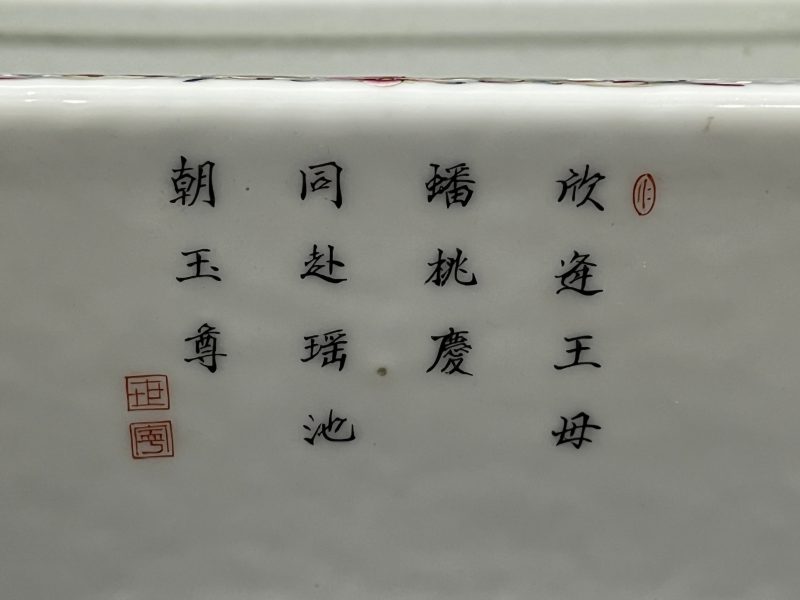 欣逢王母
蟠桃慶
同赴瑶池
朝玉尊